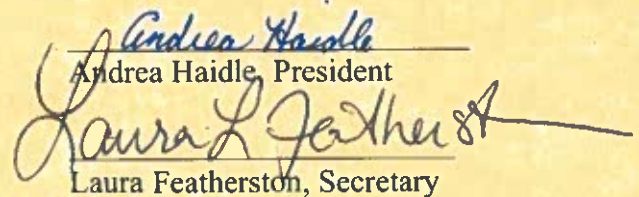 Andrea Haidle
Andrea Haidle, President
Laura L Featherst
Laura Featherston, Secretary